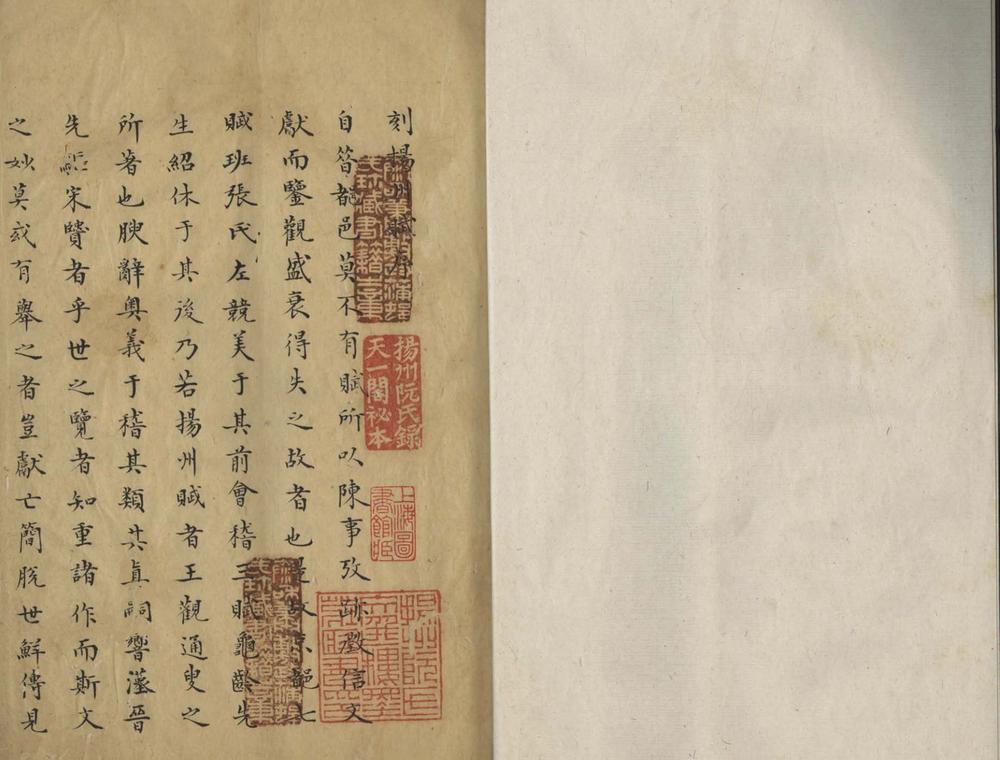 刻揚州賦序
自昝都邑莫不有賦所以陳事攷跡徵信文
獻而鑒觀盛衰得失之故者也是故京都七
賦班張氏左競美于其前會稽三賦龜齡先
生紹休于其後乃若揚州賦者王觀通叟之
所著也腴辭奧義于稽其類其真詞響藻晉
先宋賢者乎世之覽者知重諸作而斯文
之妙莫或有舉之者豈獻亡簡脫世鮮傳見
揚州阮氏錄
天一閣祕本
上海圖
書館